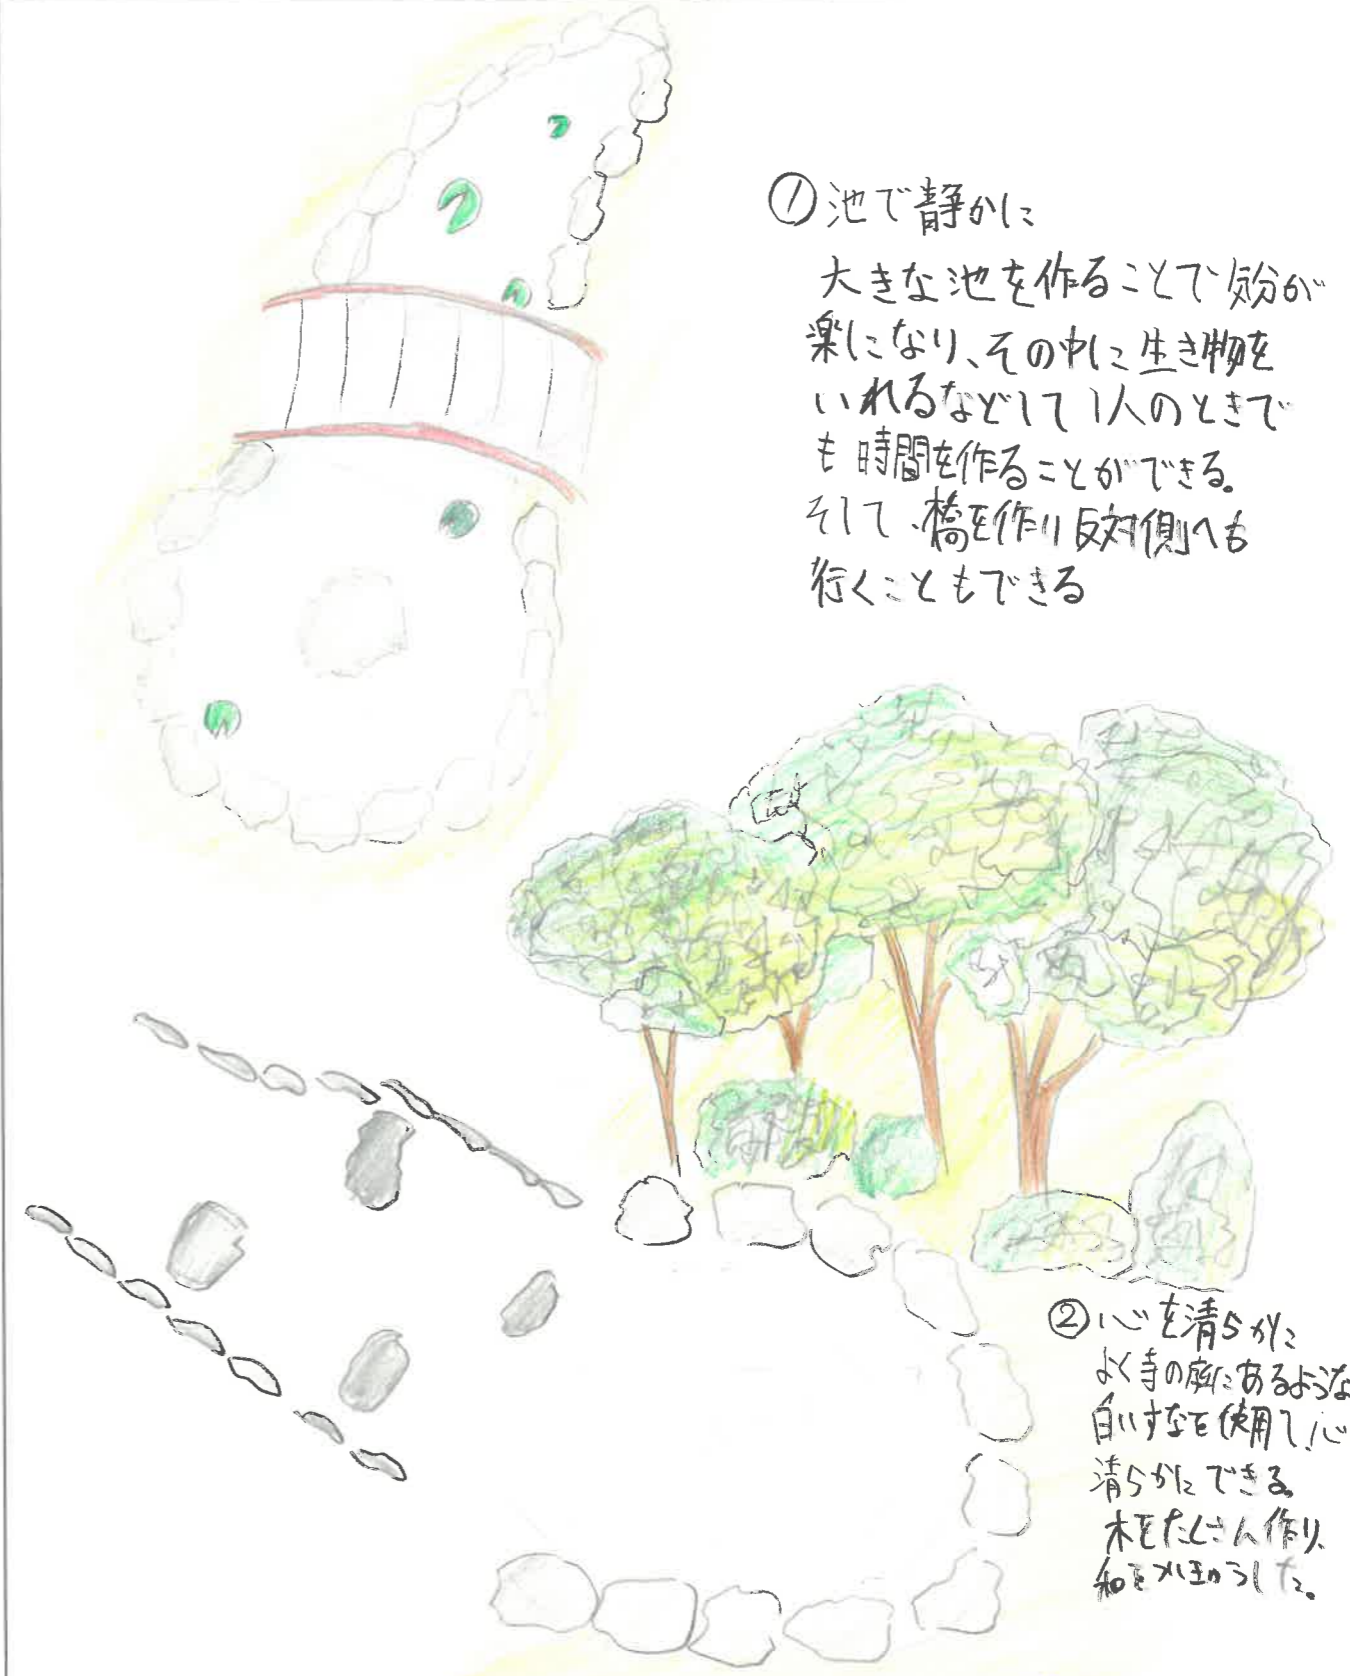 ①池で静かに
大きな池を作ることで気分が
楽になり、その中に生き物を
いれるなどして1人のときで
も時間を作ることができる。
そして、橋を作り反対側へも
行くこともできる
②心を清らかに
よく寺の庭にあるような
白いすなを使用て、心
清らかにできる。
木をたくさん作り、
和をついきゅうした。